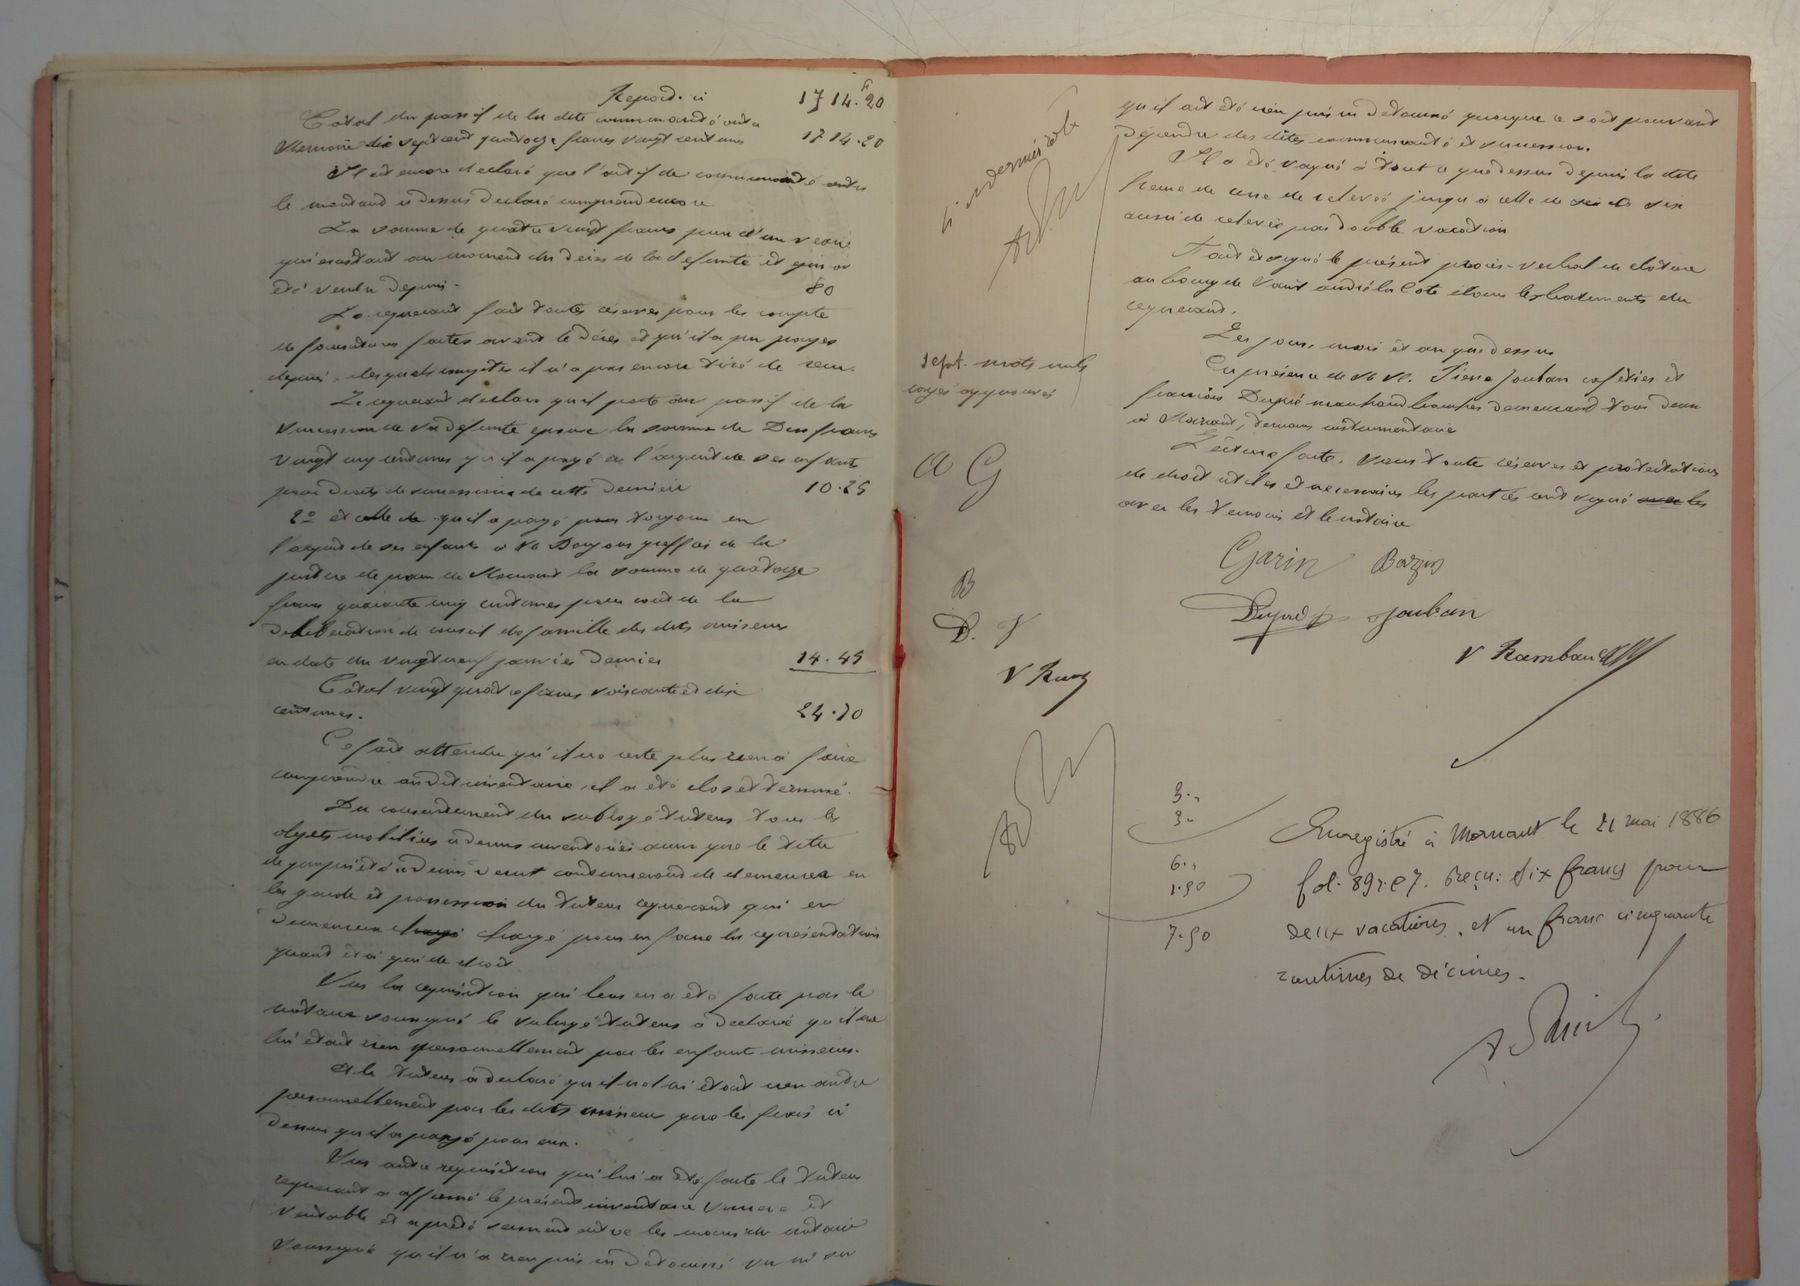 Report ci 1714 f 20
Total du passif de la dite communauté outre
Memoire dix sept cent quatorze francs vingt centimes 1714.20
Il est encore declaré que l'actif de communauté outre
le montant ci dessus declaré comprend encore
La somme de quatre vingt francs prix d'un veau
qui existant au moment du deces de la defunte et qui a
été vendu depuis. 80
Le requerant fait toutes réserves pour les compte
de fournitures faites avant le déces et qu'il a pu payer
depuis, desquels comptes il n'a pas encore tiré de recu.
Le requerant declare qu'il porte au passif de la
succession de sa defunte epouse la somme de Dix francs
vingt cinq centimes qu'il a payé de l'argent de ses enfants
pour droits de succession de cette derniere 10.25
2º et celle de qu'il a payé pour toujours en
l'argent de ses enfants à Mr greffier de la
justice de paix de Mornant la somme de quatorze
francs quarante cinq centimes pour cout de la
deliberation de conseil de famille des dits mineurs
en date du vingt neuf janvier dernier 14.45
Total vingt quatre francs soixante et dix
centimes. 24.70
Ce fait attendu qu'il ne reste plus rien à faire
comprendre au dit inventaire, il a été clos et terminé.
Du consentement du subrogé tuteur tous les
objets mobiliers ci dessus inventoriés ainsi que le titre
de propriété ci dessus visent continueront de demeurer en
la garde et possession du tuteur requerant qui en
demeurera chargé chargé pour en faire la représentation
quand et à qui de droit
Sur la requisition qui leur en a été faite par le
notaire soussigné le subrogé tuteur a declaré qu'il ne
lui était rien personnellement par les enfant mineurs.
Et le tuteur a declaré qu'il ne lui était rien autre
personnellement par les dits mineur que les frais ci
dessus qu'il a payé pour eux.
Sur autre requisition qui lui a été faite le tuteur
requerant a affirmé le présent inventaire sincere et
veritable et a prêté serment entre les mains du notaire
soussigné qu'il n'a rien pris ni detourné su ni vu
qu'il ait été rien pris ni detourné quoique ce soit pouvant
dépendre des dites communauté et succession.
Il a été vaqué à tout ce que dessus depuis la dite
heure de une de relevée jusqu'à celle de six
aussi de relevée par double vacation
Tout et signé le présent procès-verbal de cloture
au bourg de Saint andré la Cote dans les batiments du
requerant.
Les jour, mois et an que dessus
En présence de MM. Pierre Jouban cafetier et
francois Dupré marchand demeurant tous deux
à Mornant, témoins instrumentaire
Lecture faite, sous toute réserves et protestations
de droit utiles et necessaires les parties ont signé avec les
avec les temoins et le notaire
Garin Bazin
Jouban
V Rambaud
et dernier rôle
sept mots nuls
rayés approuvés
G
B
D. J
V Ram
3.,
3.,
6.,
1.50
7.50
Enregistré à Mornant le 21 mai 1886
fol. 89 r. c 7. Reçu: six francs pour
deux vacations, et un franc cinquante
centimes de décimes.